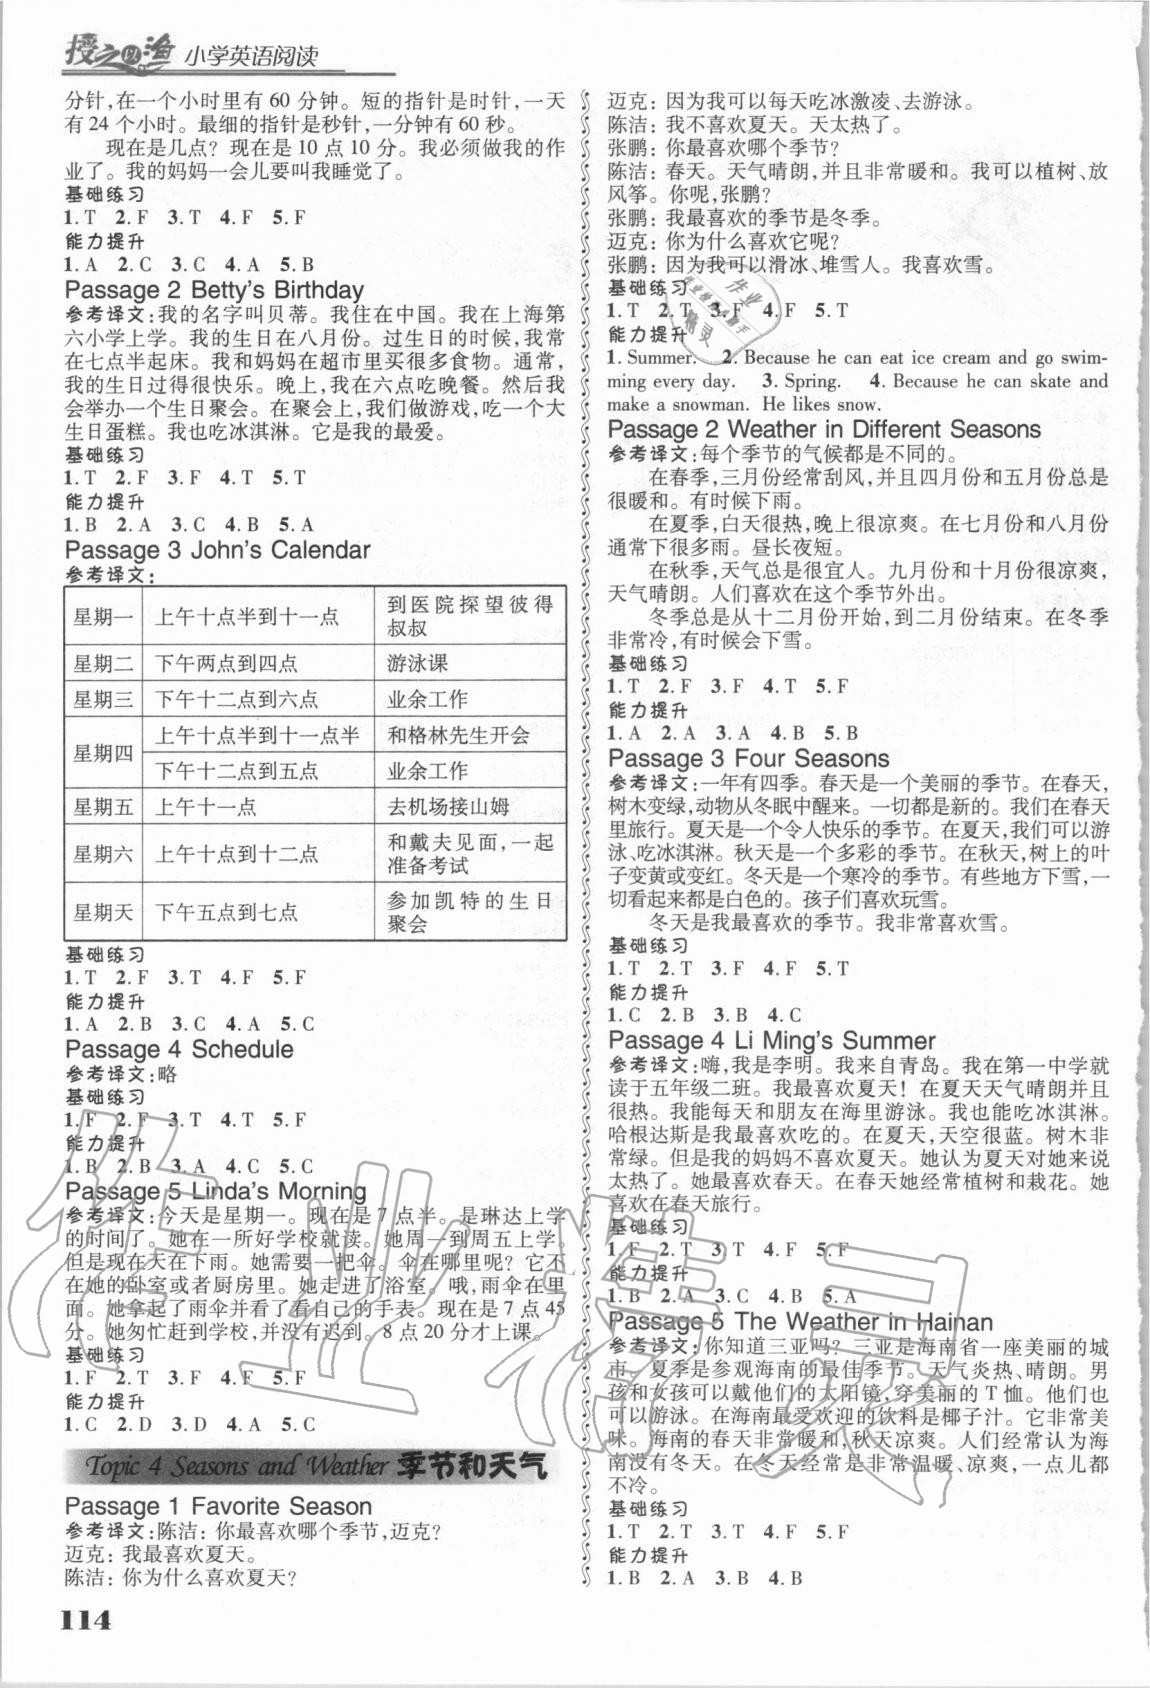 授之以渔 小学英语阅读
分针,在一个小时里有 60 分钟。短的指针是时针,一天
有 24 个小时。最细的指针是秒针,一分钟有 60 秒。
现在是几点? 现在是 10 点 10 分。我必须做我的作
业了。我的妈妈一会儿要叫我睡觉了。
基础练习
1.T 2.F 3.T 4.F 5.F
能力提升
1.A 2.C 3.C 4.A 5.B
Passage 2 Betty's Birthday
参考译文:我的名字叫贝蒂。我住在中国。我在上海第
六小学上学。我的生日在八月份。过生日的时候,我常
在七点半起床。我和妈妈在超市里买很多食物。通常,
我的生日过得很快乐。晚上,我在六点吃晚餐。然后我
会举办一个生日聚会。在聚会上,我们做游戏,吃一个大
生日蛋糕。我也吃冰淇淋。它是我的最爱。
基础练习
1.T 2.F 3.F 4.T 5.T
能力提升
1.B 2.A 3.C 4.B 5.A
Passage 3 John's Calendar
参考译文:
星期一 上午十点半到十一点 到医院探望彼得
叔叔
星期二 下午两点到四点 游泳课
星期三 下午十二点到六点 业余工作
星期四 上午十点半到十一点半 和格林先生开会
下午十二点到五点 业余工作
星期五 上午十一点 去机场接山姆
星期六 上午十点到十二点 和戴夫见面,一起
准备考试
星期天 下午五点到七点 参加凯特的生日
聚会
基础练习
1.T 2.F 3.T 4.F 5.F
能力提升
1.A 2.B 3.C 4.A 5.C
Passage 4 Schedule
参考译文:略
基础练习
1.F 2.F 3.T 4.T 5.F
能力提升
1.B 2.B 3.A 4.C 5.C
Passage 5 Linda's Morning
参考译文:今天是星期一。现在是 7 点半。是琳达上学
的时间了。她在一所好学校就读。她周一到周五上学。
但是现在天在下雨。她需要一把伞。伞在哪里呢? 它不
在她的卧室或者厨房里。她走进了浴室。哦,雨伞在里
面。她拿起了雨伞并看了看自己的手表。现在是 7 点 45
分。她匆忙赶到学校,并没有迟到。8 点 20 分才上课。
基础练习
1.F 2.T 3.F 4.F 5.F
能力提升
1.C 2.D 3.D 4.A 5.C
Topic 4 Seasons and Weather 季节和天气
Passage 1 Favorite Season
参考译文:陈洁: 你最喜欢哪个季节,迈克?
迈克: 我最喜欢夏天。
陈洁: 你为什么喜欢夏天?
114
迈克: 因为我可以每天吃冰激凌、去游泳。
陈洁: 我不喜欢夏天。天太热了。
张鹏: 你最喜欢哪个季节?
陈洁: 春天。天气晴朗,并且非常暖和。我可以植树、放
风筝。你呢,张鹏?
张鹏: 我最喜欢的季节是冬季。
迈克: 你为什么喜欢它呢?
张鹏: 因为我可以滑冰、堆雪人。我喜欢雪。
基础练习
1.T 2.T 3.F 4.F 5.T
能力提升
1. Summer. 2. Because he can eat ice cream and go swim-
ming every day. 3. Spring. 4. Because he can skate and
make a snowman. He likes snow.
Passage 2 Weather in Different Seasons
参考译文:每个季节的气候都是不同的。
在春季,三月份经常刮风,并且四月份和五月份总是
很暖和。有时候下雨。
在夏季,白天很热,晚上很凉爽。在七月份和八月份
通常下很多雨。昼长夜短。
在秋季,天气总是很宜人。九月份和十月份很凉爽,
天气晴朗。人们喜欢在这个季节外出。
冬季总是从十二月份开始,到二月份结束。在冬季
非常冷,有时候会下雪。
基础练习
1.T 2.F 3.F 4.T 5.F
能力提升
1.A 2.A 3.A 4.B 5.B
Passage 3 Four Seasons
参考译文:一年有四季。春天是一个美丽的季节。在春天,
树木变绿,动物从冬眠中醒来。一切都是新的。我们在春天
里旅行。夏天是一个令人快乐的季节。在夏天,我们可以游
泳、吃冰淇淋。秋天是一个多彩的季节。在秋天,树上的叶
子变黄或变红。冬天是一个寒冷的季节。有些地方下雪,一
切看起来都是白色的。孩子们喜欢玩雪。
冬天是我最喜欢的季节。我非常喜欢雪。
基础练习
1.T 2.T 3.F 4.F 5.T
能力提升
1.C 2.B 3.B 4.C
Passage 4 Li Ming's Summer
参考译文:嗨,我是李明。我来自青岛。我在第一中学就
读于五年级二班。我最喜欢夏天! 在夏天天气晴朗并且
很热。我能每天和朋友在海里游泳。我也能吃冰淇淋。
哈根达斯是我最喜欢吃的。在夏天,天空很蓝。树木非
常绿。但是我的妈妈不喜欢夏天。她认为夏天对她来说
太热了。她最喜欢春天。在春天她经常植树和栽花。她
喜欢在春天旅行。
基础练习
1.F 2.T 3.T 4.F 5.F
能力提升
1.B 2.A 3.C 4.B 5.A
Passage 5 The Weather in Hainan
参考译文:你知道三亚吗? 三亚是海南省一座美丽的城
市。夏季是参观海南的最佳季节。天气炎热、晴朗。男
孩和女孩可以戴他们的太阳镜,穿美丽的 T 恤。他们也
可以游泳。在海南最受欢迎的饮料是椰子汁。它非常美
味。海南的春天非常暖和,秋天凉爽。人们经常认为海
南没有冬天。在冬天经常是非常温暖、凉爽,一点儿都
不冷。
基础练习
1.T 2.T 3.T 4.F 5.F
能力提升
1.B 2.A 3.B 4.B
作业精灵